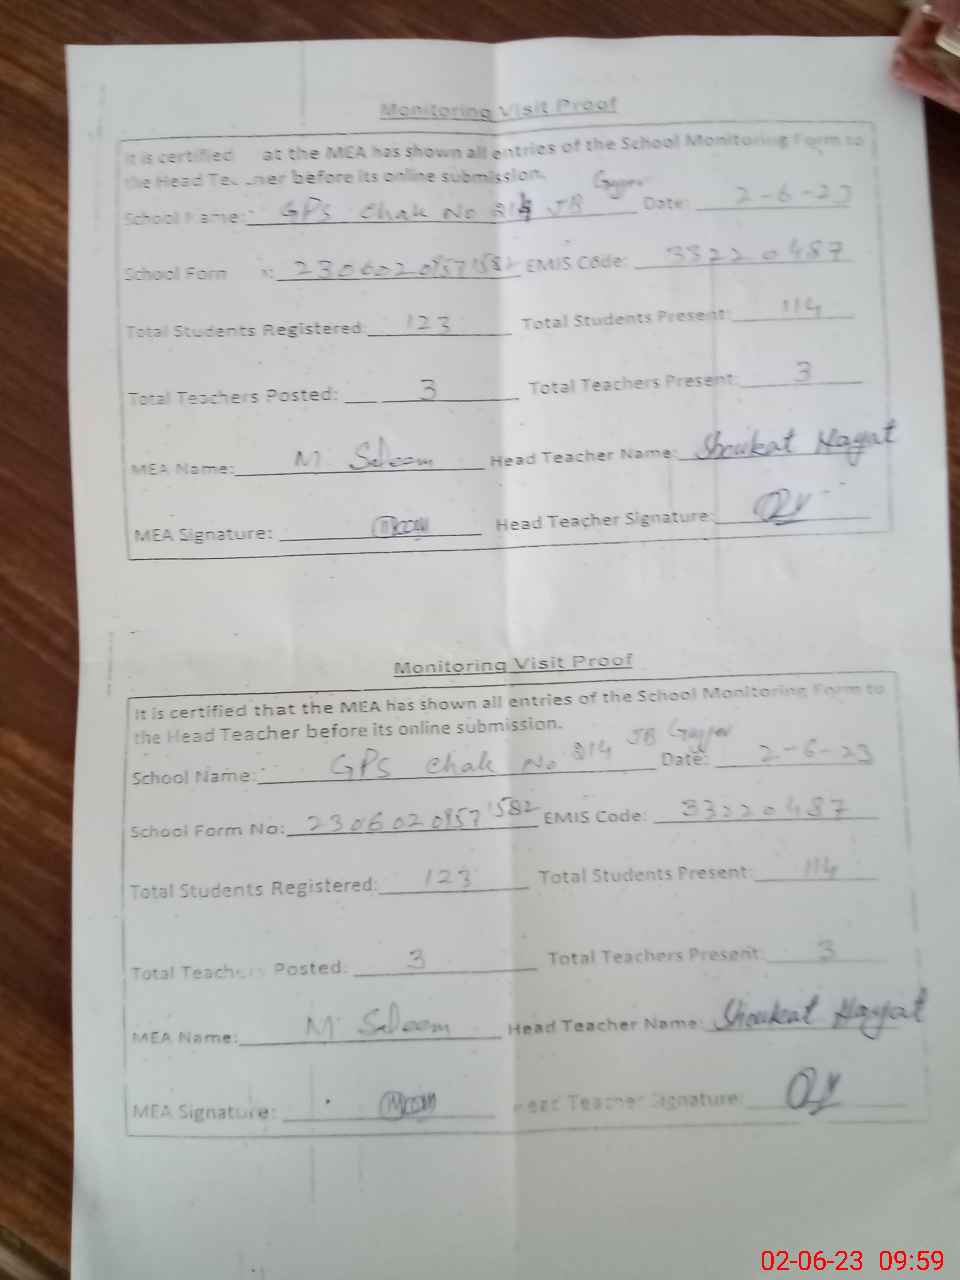 Monitoring Visit Proof
It is certified at the MEA has shown all entries of the School Monitoring Form to
the Head Teacher before its online submission.
School Name: GPS Chak No 214 JB Gujjar Date: 2-6-23
School Form 23060209571582 EMIS Code: 33220487
Total Students Registered: 123 Total Students Present: 114
Total Teachers Posted: 3 Total Teachers Present: 3
MEA Name: M. Saleem Head Teacher Name: Shoukat Hayat
MEA Signature: Head Teacher Signature:
Monitoring Visit Proof
It is certified that the MEA has shown all entries of the School Monitoring Form to
the Head Teacher before its online submission.
School Name: GPS Chak No 214 JB Gujjar Date: 2-6-23
School Form No: 23060209571582 EMIS Code: 33220487
Total Students Registered: 123 Total Students Present: 114
Total Teachers Posted: 3 Total Teachers Present: 3
MEA Name: M. Saleem Head Teacher Name: Shoukat Hayat
MEA Signature: Head Teacher Signature:
02-06-23 09:59